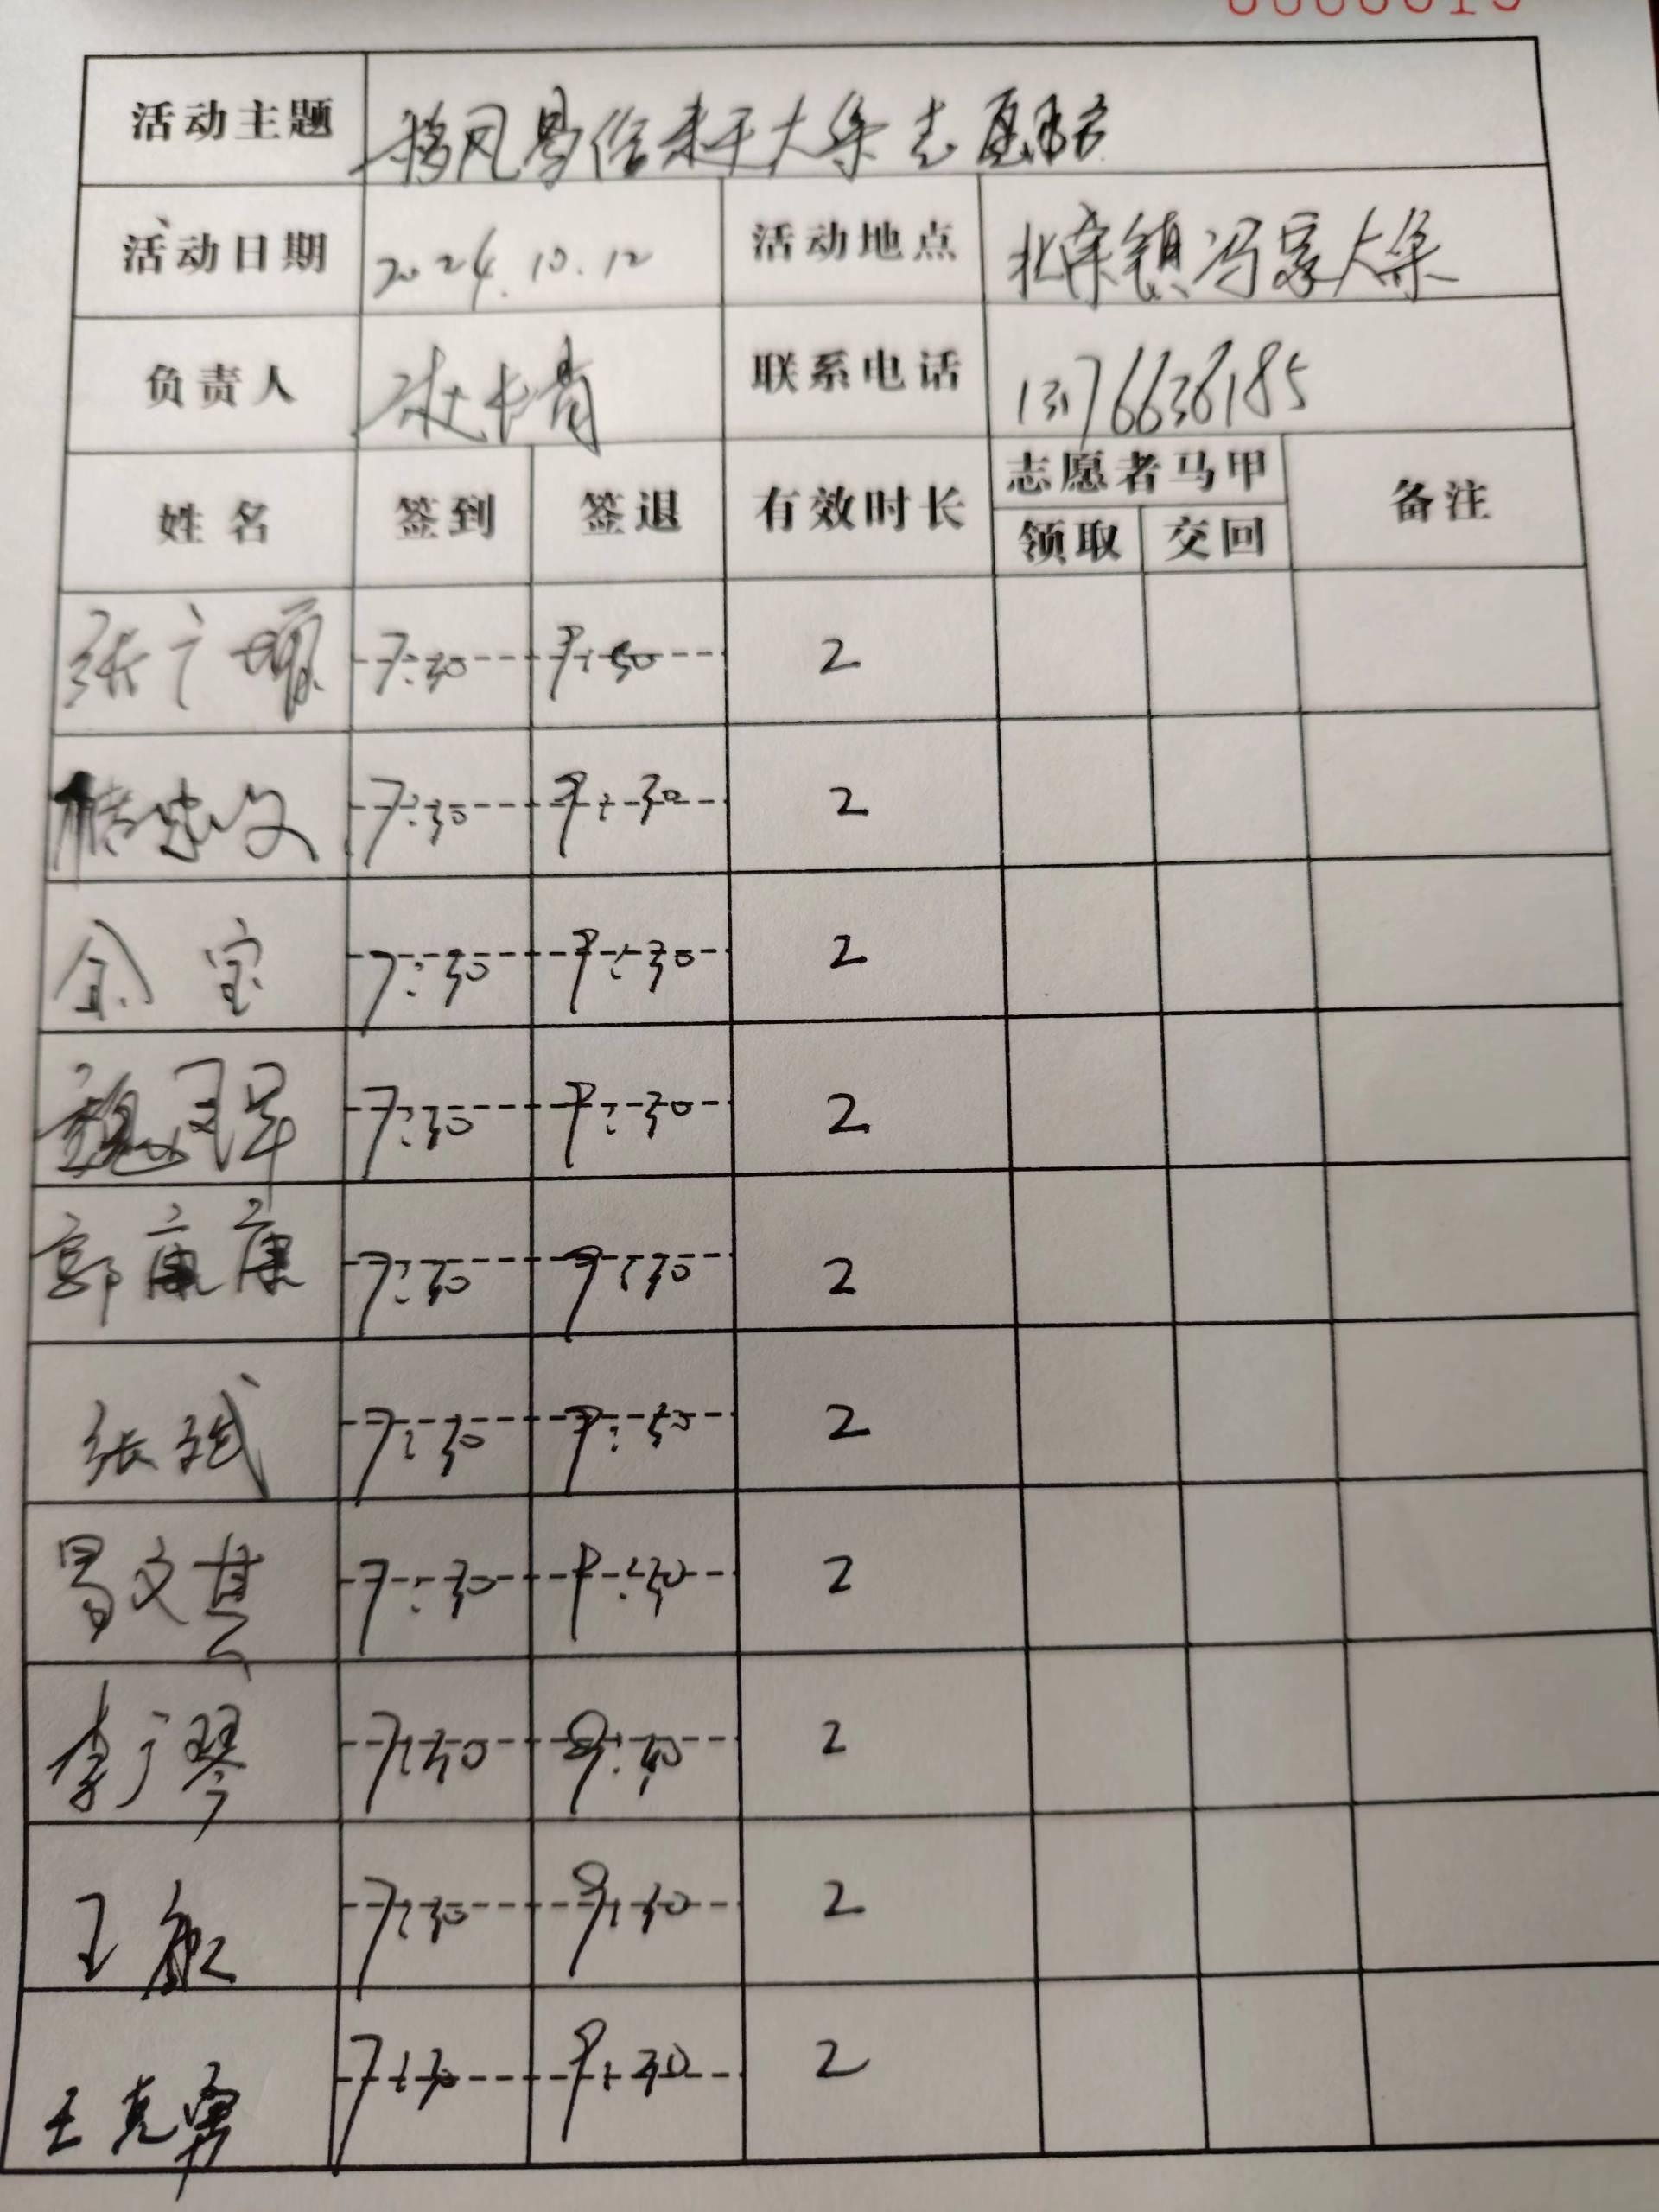 活动主题 移风易俗来手大集志愿服务
活动日期 2024.10.12 活动地点 北宋镇冯家大集
负责人 联系电话 13176636185
姓名 签到 签退 有效时长 志愿者马甲 备注
领取 交回
张广 7:30 9:30 2
7:30 9:30 2
余宝 7:30 9:30 2
魏 7:30 9:30 2
郭康康 7:30 9:30 2
张斌 7:30 9:30 2
文 7:30 9:30 2
李广琴 7:30 9:30 2
王敏 7:30 9:30 2
王克勇 7:30 9:30 2